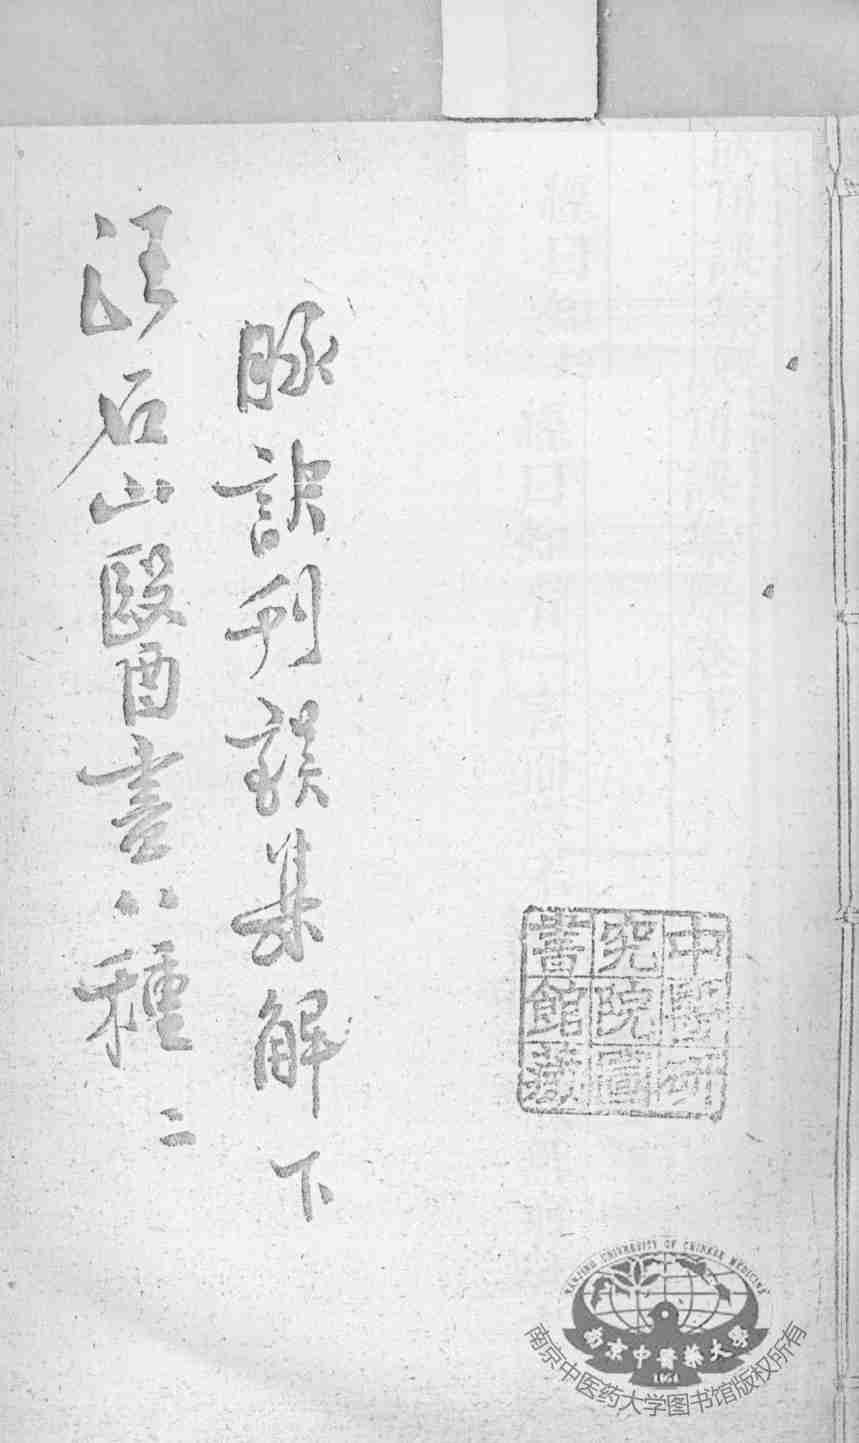 脉訣刋誤集解 下
汪石山醫書八種 二
中醫研
究院圖
書館藏
NANJING UNIVERSITY OF CHINESE MEDICINE
南京中醫藥大學
1954
南京中医药大学图书馆版权所有